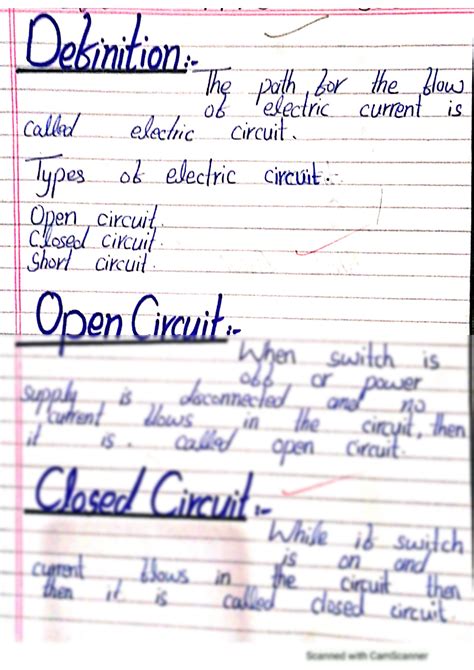 Definition:-
The path for the flow
of electric current is
called electric circuit.
Types of electric circuit:-
Open circuit
Closed circuit.
Short circuit.
Open Circuit:-
When switch is
off or power
supply is disconnected and no
current flows in the circuit, then
it is. called open circuit.
Closed Circuit:-
While if switch
is on and
current flows in the circuit then
then it is called closed circuit
Scanned with CamScanner